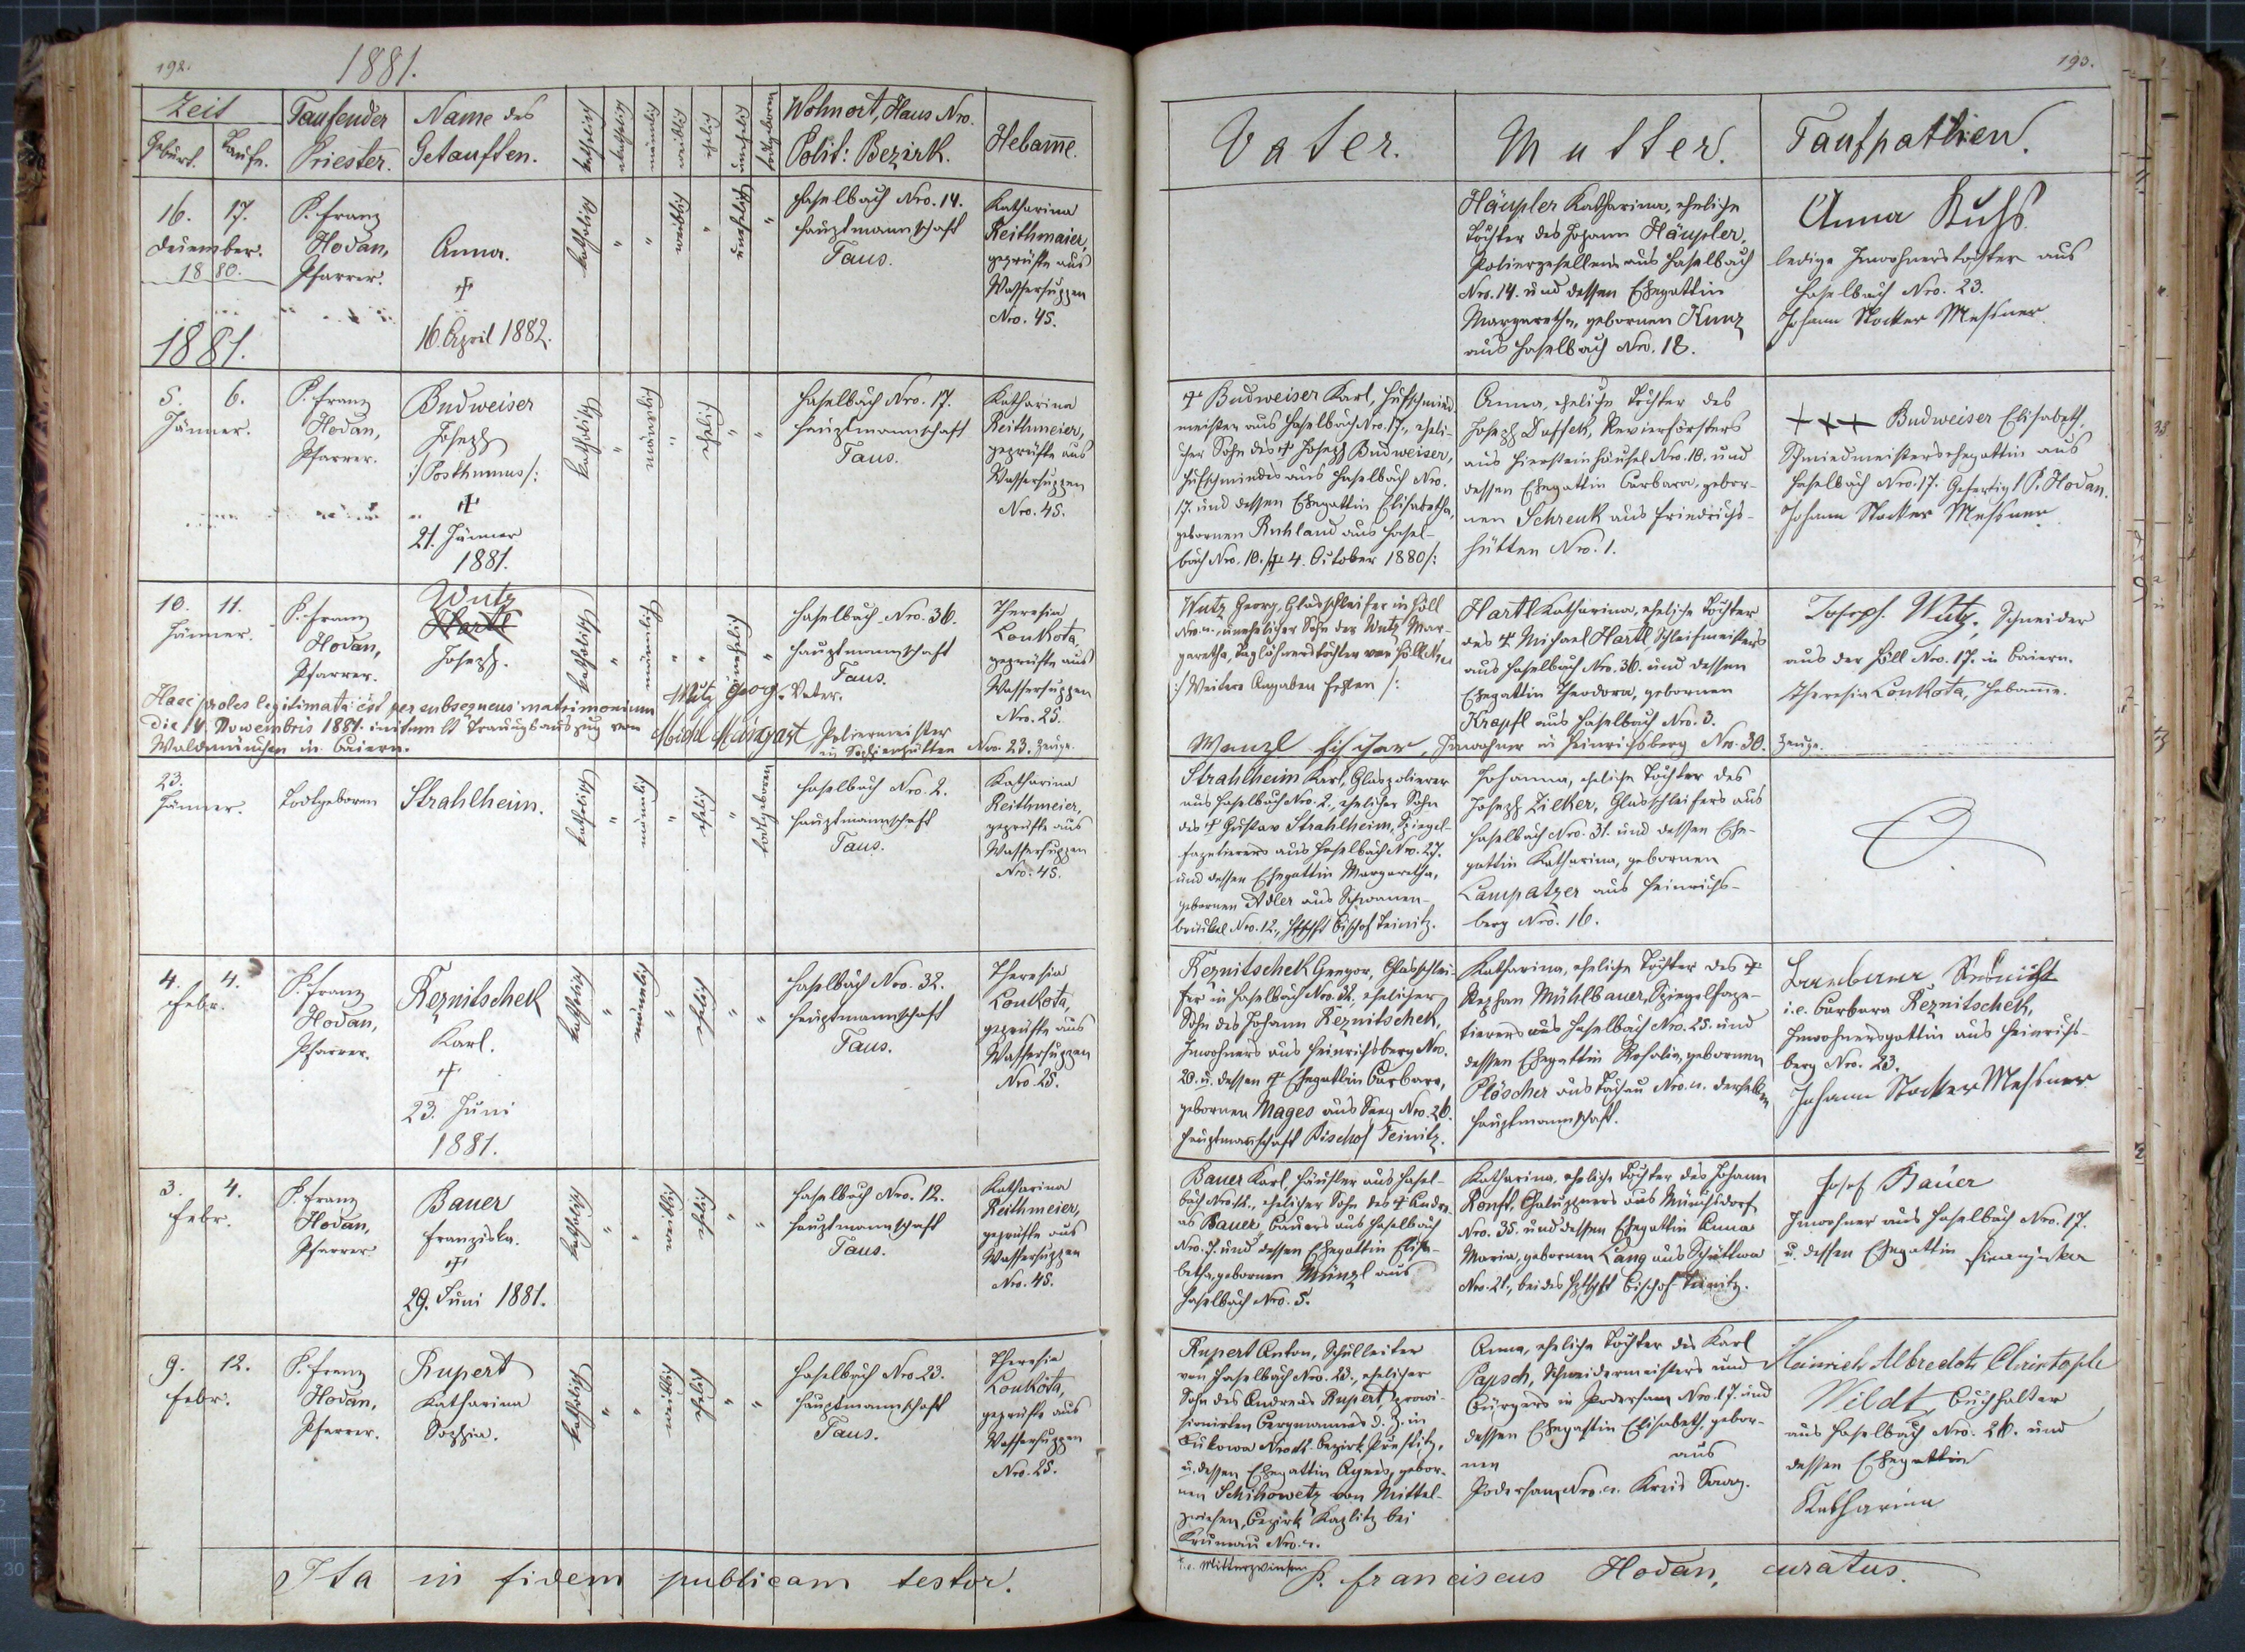 192.
1881.
Zeit
Geburt. Taufe.
Taufender
Priester.
Name des
Getauften.
katholisch
akatholisch
männlich
weiblich
ehelich
unehelich
todtgeboren
Wohnort, Haus Nro.
Polit: Bezirk.
Hebamme.
16. 17.
December.
1880.
1881.
P. Franz
Hodan,
Pfarrer.
Anna.
†
16. April 1882.
katholisch
"
"
weiblich
"
unehelich
"
Haselbach Nro. 14.
Hauptmannschaft
Taus.
Katharina
Reithmaier,
geprüfte aus
Wassersuppen
Nro. 45.
5. 6.
Jänner.
P. Franz
Hodan,
Pfarrer.
Budweiser
Joseph
/: Posthumus :/
†
21. Jänner
1881.
katholisch
"
männlich
"
ehelich
"
"
Haselbach Nro. 17.
Hauptmannschaft
Taus.
Katharina
Reithmeier,
geprüfte aus
Wassersuppen
Nro. 45.
10. 11.
Jänner.
P. Franz
Hodan,
Pfarrer.
Wutz
Hartl
Joseph.
katholisch
"
männlich
"
"
unehelich
"
Haselbach Nro. 36.
Hauptmannschaft
Taus.
Theresia
Loukota,
geprüfte aus
Wassersuppen
Nro. 25.
Haec proles legitimata est per subsequens matrimonium
die 14. Novembris 1881. initum lt Trauungsauszug von
Waldmünchen in Baiern.
Wutz Georg. Vater.
Michl Maingast Poliermeister
in Sophienhütten Nro. 23. Zeuge.
23.
Jänner.
Todtgeboren
Strahlheim.
katholisch
"
männlich
"
ehelich
"
todtgeboren
Haselbach Nro. 2.
Hauptmannschaft
Taus.
Katharina
Reithmeier,
geprüfte aus
Wassersuppen
Nro. 45.
4. 4.
Febr.
P. Franz
Hodan,
Pfarrer.
Reznitschek
Karl.
†
23. Juni
1881.
katholisch
"
männlich
"
ehelich
"
"
Haselbach Nro. 32.
Hauptmannschaft
Taus.
Theresia
Loukota,
geprüfte aus
Wassersuppen
Nro 25.
3. 4.
Febr.
P. Franz
Hodan,
Pfarrer
Bauer
Franziska.
†
29. Juni 1881.
katholisch
"
"
weiblich
ehelich
"
"
Haselbach Nro. 12.
Hauptmannschaft
Taus.
Katharina
Reithmeier,
geprüfte aus
Wassersuppen
Nro. 45.
9. 12.
Febr.
P. Franz
Hodan,
Pfarrer.
Rupert
Katharina
Sophia.
katholisch
"
"
weiblich
ehelich
"
"
Haselbach Nro 23.
Hauptmannschaft
Taus.
Theresia
Loukota,
geprüfte aus
Wassersuppen
Nro. 25.
Ita in fidem publicam testor.
193.
Vater.
Mutter.
Taufpathen.
Häupler Katharina, eheliche
Tochter des Johann Häupler,
Poliergesellens aus Haselbach
Nro. 14. und dessen Ehegattin
Margaretha, gebornen Kunz
aus Haselbach Nro. 18.
Anna Kuhs
ledige Inwohnerstochter aus
Haselbach Nro. 23.
Johann Stocker Messner
† Budweiser Karl, Hufschmied
meister aus Haselbach Nro. 17., eheli-
cher Sohn des † Joseph Budweiser,
Hufschmiedes aus Haselbach Nro.
17. und dessen Ehegattin Elisabetha,
gebornen Ruhland aus Hasel-
bach Nro. 10. /: † 4. October 1880 :/
Anna, eheliche Tochter des
Joseph Dassek, Revierförsters
aus Hirschsteinhäusel Nro. 18. und
dessen Ehegattin Barbara, gebor-
nen Schrenk aus Friedrichs-
hütten Nro. 1.
+++ Budweiser Elisabeth,
Schmiedmeistersehegattin aus
Haselbach Nro. 17. Gefertigt P. Hodan.
Johann Stocker Messner
Wutz Georg, Glasschleifer in Höll
Nro. , unehelicher Sohn der Wutz Mar-
garetha, Taglöhnerstochter von Höll Nro
/: Weitere Angaben fehlen :/
Hartl Katharina, eheliche Tochter
des † Michael Hartl, Schleifmeisters
aus Haselbach Nro. 36. und dessen
Ehegattin Theodora, gebornen
Krapfl aus Haselbach Nro. 3.
Joseph Wutz, Schneider
aus der Höll Nro. 17. in Baiern.
Theresia Loukota, Hebamme.
Wenzl Fischer, Inwohner in Heinrichsberg Nro. 30. Zeuge.
Strahlheim Karl, Glaspolierer
aus Haselbach Nro. 2., ehelicher Sohn
des † Gustav Strahlheim, Spiegel-
fazetierers aus Haselbach Nro. 27.
und dessen Ehegattin Margaretha,
gebornen Adler aus Schwanen-
brückel Nro. 12., Hptschft Bischof Teinitz.
Johanna, eheliche Tochter des
Joseph Zieker, Glasschleifers aus
Haselbach Nro. 31. und dessen Ehe-
gattin Katharina, gebornen
Lampatzer aus Heinrichs-
berg Nro. 16.
Reznitschek Gregor, Glasschlei-
fer in Haselbach Nro. 32., ehelicher
Sohn des Johann Reznitschek,
Inwohners aus Heinrichsberg Nro.
20. u. dessen † Ehegattin Barbara,
gebornen Mages aus Seeg Nro. 26.
Hauptmannschaft Bischof Teinitz.
Katharina, eheliche Tochter des †
Stephan Mühlbauer, Spiegelfaze-
tierers aus Haselbach Nro. 25. und
dessen Ehegattin Rosalia, gebornen
Plöscher aus Tachau Nro. derselben
Hauptmannschaft.
i.e. Barbara Reznitschek,
Inwohnersgattin aus Heinrichs-
berg Nro. 23.
Johann Stocker Messner
Bauer Karl, Häusler aus Hasel-
bach Nro 12., ehelicher Sohn des † Andre-
as Bauer, Bauers aus Haselbach
Nro. 7. und dessen Ehegattin Elisa-
betha, gebornen Münzl aus
Haselbach Nro. 5.
Katharina, eheliche Tochter des Johann
Konst, Chaluppners aus Münchsdorf
Nro. 35. und dessen Ehegattin Anna
Maria, gebornen Lang aus Schüttwa
Nro. 21., beides Hptschft Bischof Teinitz.
Josef Bauer
Inwohner aus Haselbach Nro. 17.
u. dessen Ehegattin Franziska
Rupert Anton, Schulleiter
von Haselbach Nro. 23., ehelicher
Sohn des Andreas Rupert, provi-
sionirten Bergmannes d. Z. in
Bukowa Nro 42. Bezirk Prestitz,
u. dessen Ehegattin Agnes, gebor-
nen Schikowetz von Mittel-
zwiesen, Bezirk Kaplitz bei
Krumau Nro.
i.e. Mitterzwinsen
Anna, eheliche Tochter des Karl
Papsch, Schneidermeisters und
Bürgers in Podersam Nro. 17. und
dessen Ehegattin Elisabeth, gebor-
nen aus
Podersam Nro. Kreis Saaz.
Heinrich Albrecht Christoph
Wildt, Buchhalter
aus Haselbach Nro. 26. und
dessen Ehegattin
Katharina
P. Franciscus Hodan, curatus.